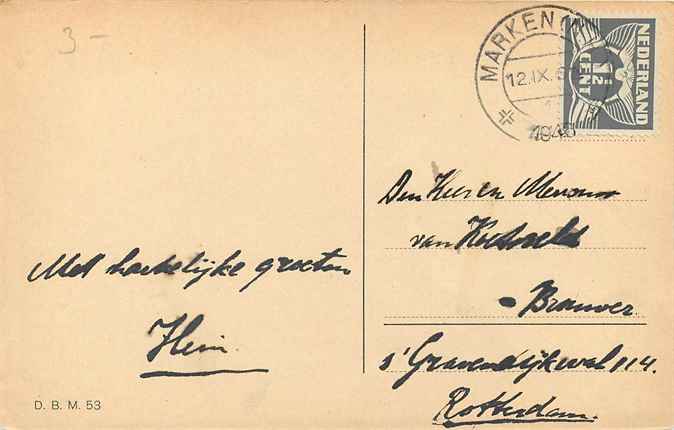 3-
MARKEN
12.IX.
1946
NEDERLAND
1½
CENT
Den Heer en Mevrouw
van
- Brouwer.
s' Gravendijkwal 114.
Rotterdam.
Met hartelijke groeten
Hein.
D. B. M. 53